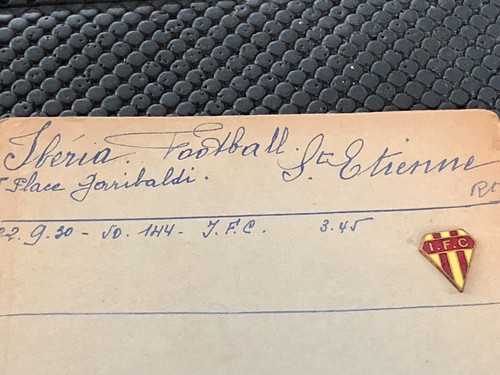 Ibéria. Football. St Etienne
Place Garibaldi.
22.9.30 - 50. 144 - I.F.C. 3.45
I.F.C